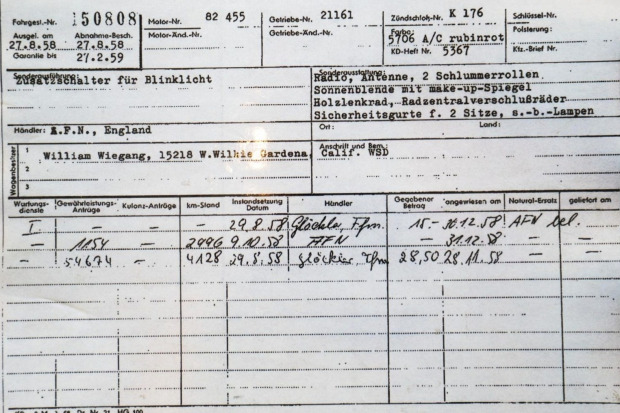 Fahrgest.-Nr. 150808 Motor-Nr. 82 455 Getriebe-Nr. 21161 Zündschloß-Nr. K 176 Schlüssel-Nr.
Ausgel. am Abnahme-Besch. Motor-Änd.-Nr. Getriebe-Änd.-Nr. Farbe: 5706 A/C rubinrot Polsterung:
27.8.58 27.8.58
Garantie bis 27.2.59 KD-Heft Nr. 5367 Kfz.-Brief Nr.
Sonderausführung: Zusatzschalter für Blinklicht
Sonderausstattung: Radio, Antenne, 2 Schlummerrollen
Sonnenblende mit make-up-Spiegel
Holzlenkrad, Radzentralverschlußräder
Sicherheitsgurte f. 2 Sitze, s.-b.-Lampen
Händler: A.F.N., England Ort: Land:
Wagenbesitzer
1 William Wiegang, 15218 W.Wilkie Gardena, Calif. WSD
Anschrift und Bem.:
2
3
Wartungs-dienste Gewährleistungs-Anträge Kulanz-Anträge km-Stand Instandsetzung Datum Händler Gegebener Betrag angewiesen am Natural-Ersatz geliefert am
I – – – 29.8.58 Glöckler, Ffm. 15.– 30.12.58 AFN bel.
– 1154 – 2996 9.10.58 AFN – 31.12.58
– 54674 – 4128 29.8.58 Glöckler Ffm. 28,50 28.11.58